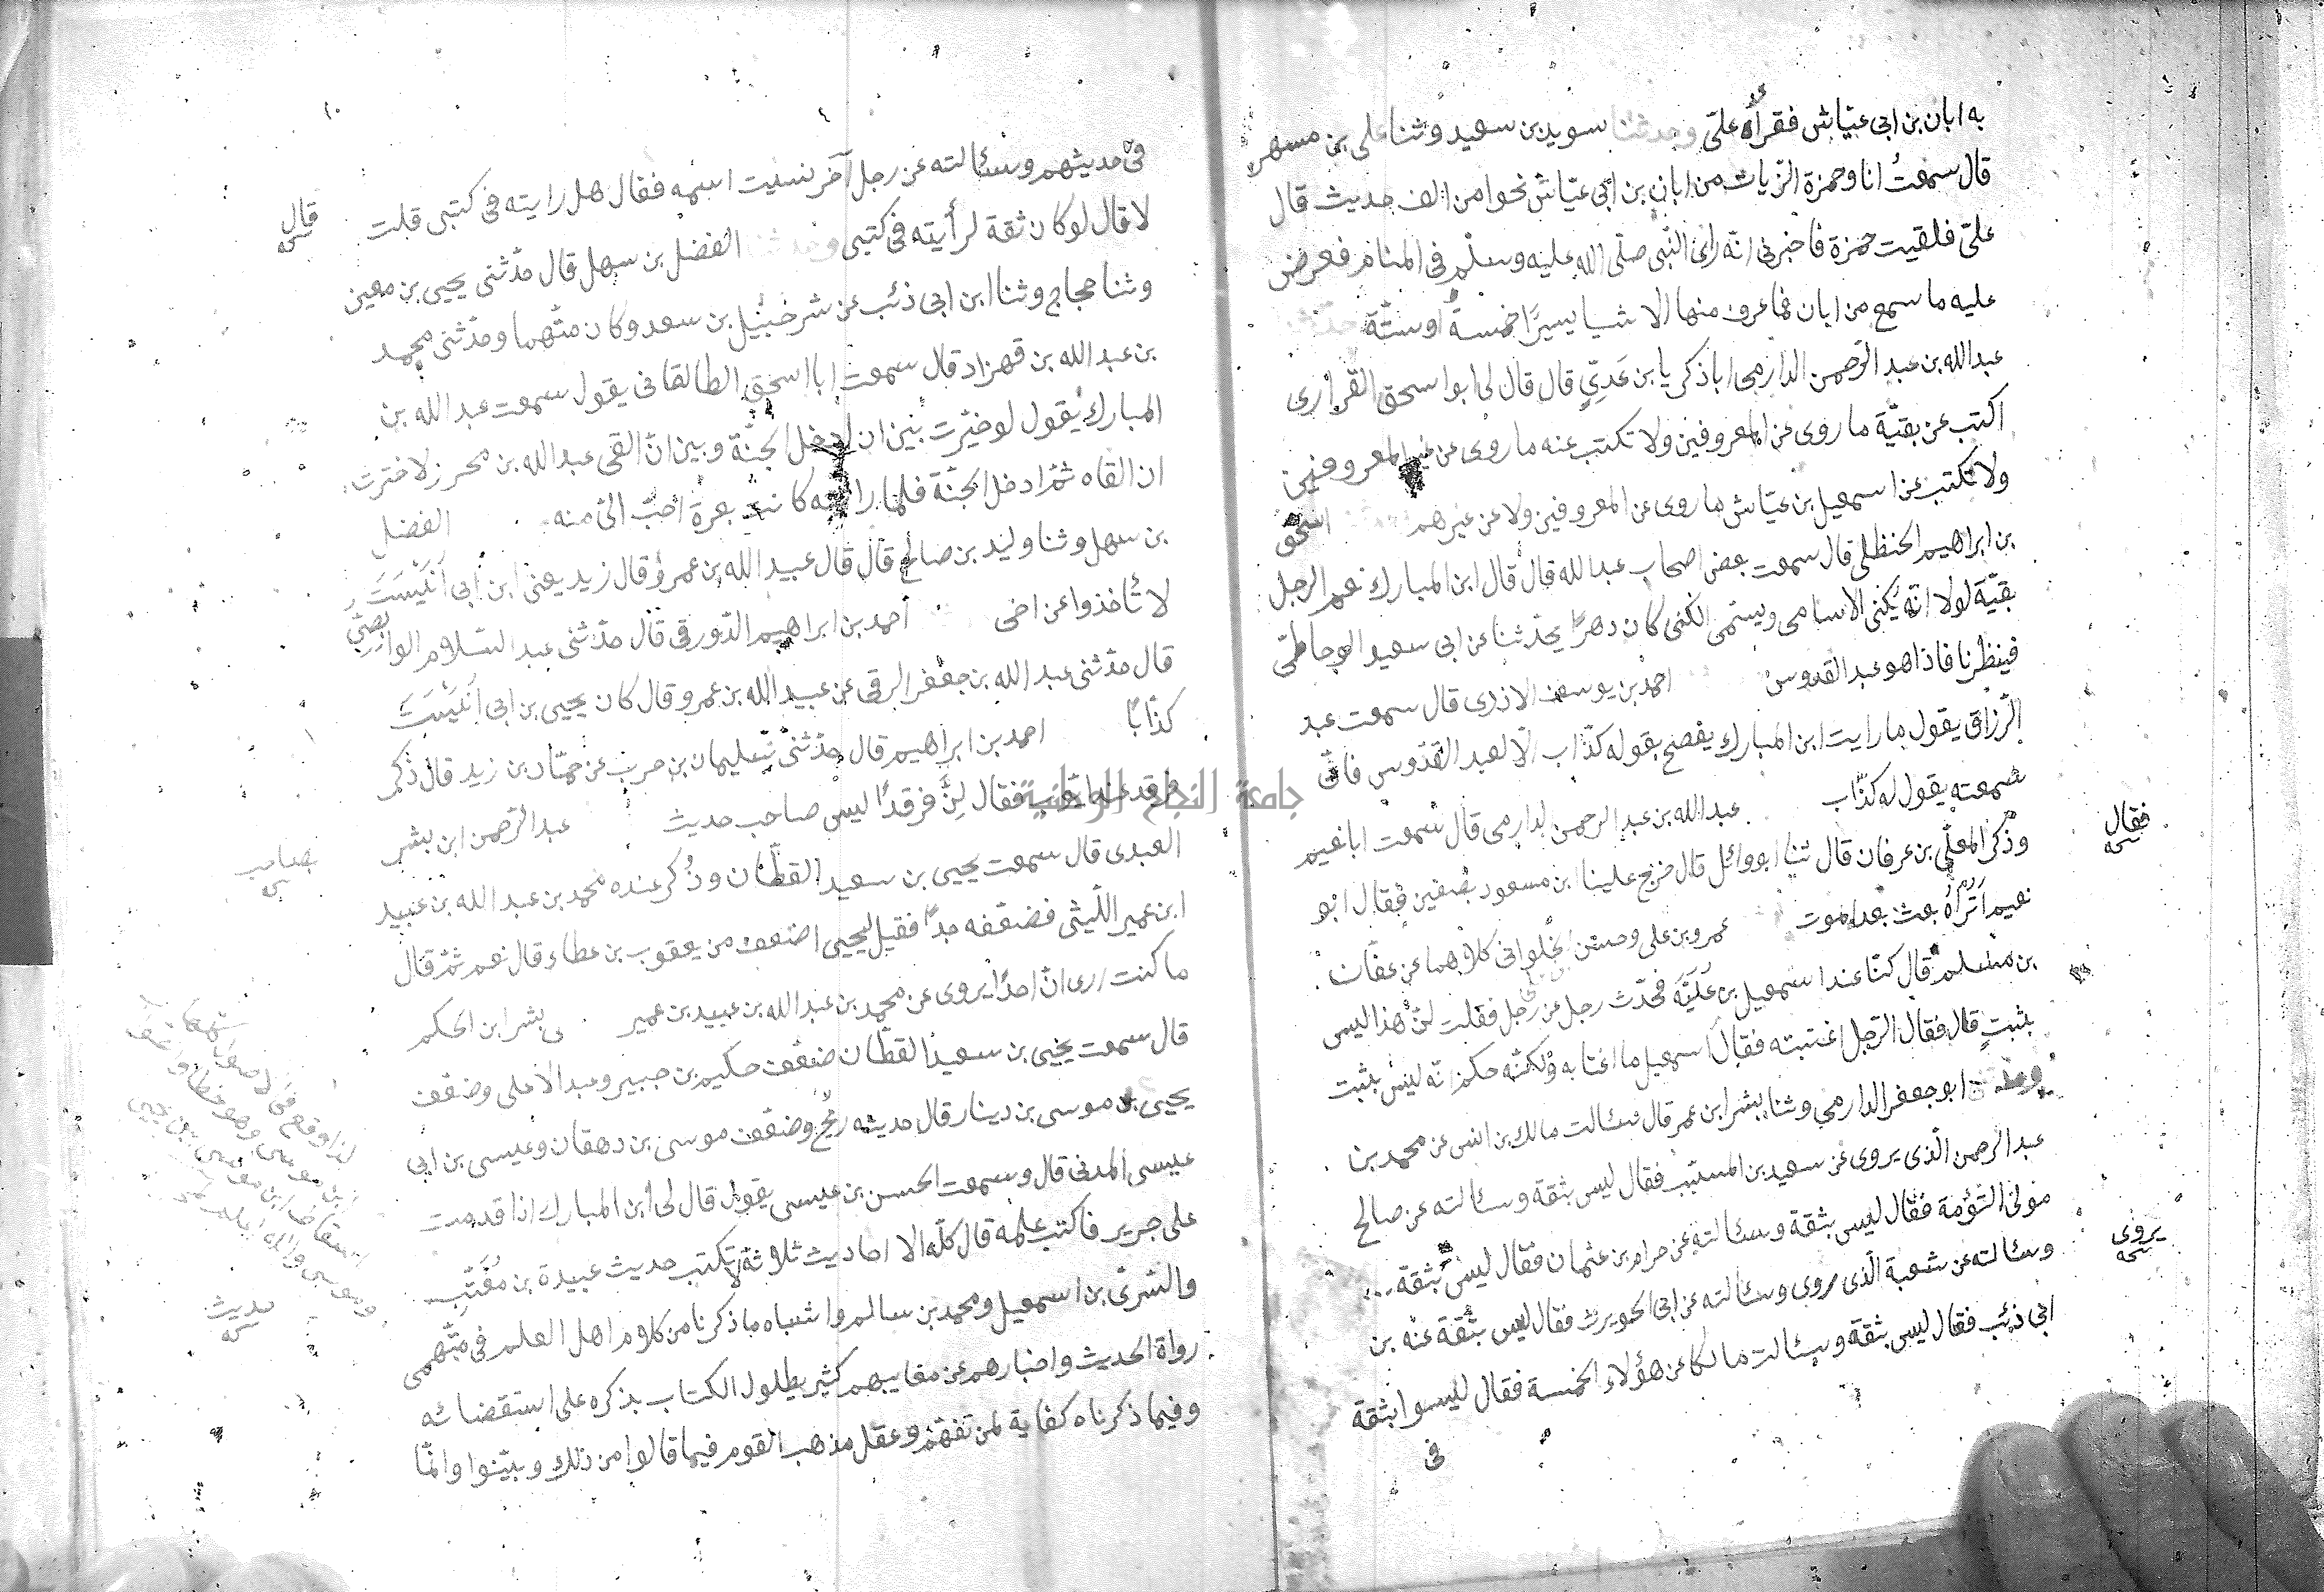 به ابان بن ابى عيّاش فقرأه علىّ وحدثنا سويد بن سعيد وثنا على بن مسهر
قال سمعتُ انا وحمزة الزّيات من ابان بن ابى عيّاش نحوا من الف حديث قال
علىّ فلقيت حمزة فاخبرنى انّه راى النّبى صلّى الله عليه وسلّم فى المنام فعرض
عليه ما سمع من ابان فما عرف منها الا شيا يسيرًا خمسةً اوستّة
عبد الله بن عبد الرّحمن الدارمى ابا ذكريا بن عَدىّ قال قال لى ابو اسحق القرارى
اكتب عن بقيّة ما روى عن المعروفين ولا تكتب عنه ما روى عن غير المعروفين
ولا تكتب عن اسمعيل بن عيّاش ما روى عن المعروفين ولا عن غيرهم اسحق
بن ابراهيم الحنظلى قال سمعت بعض اصحاب عبد الله قال قال ابن المبارك نعم الرجل
بقيّة لولا انّه يُكنى الاسامى ويسمّى الكنى كان دهرًا يحدّثنا عن ابى سعيد الوحاظى
فينظرنا فاذا هو عبد القدوس احمد بن يوسف الازدى قال سمعت عبد
الرّزاق يقول ما رايت ابن المبارك يفصح بقوله كذّاب الّا لعبد القدّوس فانّى
سمعته يقول له كذّاب عبد الله بن عبد الرحمن الدارمى قال سمعت ابا نعيم
فقال
وذكر المعلّى بن عرفان قال ثنا ابو وائل قال خرج علينا ابن مسعود بصفين فقال ابو
نعيم أتُراهُ بعث بعد الموت عمرو بن على وحسن الحُلوانى كلاهما عن عفّان
بن مسلم قال كنّا عند اسمعيل بن عُليّة فحدّث رجل عن رجل فقلت انّ هذا ليس
بثبتٍ قال فقال الرّجل اغتبته فقال اسمعيل ما اغتابه ولكنّه حكم انّه ليس بثبت
ابو جعفر الدارمى وثنا بشر ابن عمر قال سئالت مالك بن انس عن محمد بن
عبد الرحمن الّذى يروى عن سعيد بن المسيّب فقال ليس بثقة وسئالته عن صالح
مولى التّوْءَمة فقال ليس بثقة وسئالته عن حرام بن عثمان فقال ليس بثقة
يروى
وسئالته عن شعبة الّذى روى وسئالته عن ابى الحويرث فقال ليس بثقة عنه بن
ابى ذئب فقال ليس بثقة وسئالت مالكا عن هؤلاء الخمسة فقال ليسوا بثقة
فى
فى حديثهم وسئالته عن رجل آخر نسيت اسمه فقال هل رايته فى كتبى قلت
قال
لا قال لو كان ثقة لرأيته فى كتبى وحدثنا الفضل بن سهل قال حدّثنى يحيى بن معين
وثنا حجاج وثنا ابن ابى ذئب عن شرحبيل بن سعد وكان متّهما وحدّثنى محمد
بن عبد الله بن قهزاد قال سمعت ابا اسحق الطالقانى يقول سمعت عبد الله بن
المبارك يقول لو خيّرت بين ان ادخل الجنّة وبين ان القى عبد الله بن محرز لاخترت
ان القاه ثمّ ادخل الجنّة فلمّا رايته كانت بعرة احبّ الىّ منه الفضل
بن سهل وثنا وليد بن صالح قال قال عبيد الله بن عمرو قال زيد يعنى ابن ابى اُنَيْسَتَ
لا تأخذوا عن اخى احمد بن ابراهيم الدّورقى قال حدّثنى عبد السّلام الوابصىّ
قال حدّثنى عبد الله بن جعفر الرقى عن عبيد الله بن عمرو قال كان يحيى بن ابى اُنَيْسَتَ
كذّابًا احمد بن ابراهيم قال حدّثنى سليمان بن حرب عن حمّاد بن زيد قال ذُكر
فرقد عند ايوب فقال انّ فرقدًا ليس صاحب حديث عبد الرّحمن ابن بشر
بصاحب
العبدى قال سمعت يحيى بن سعيد القطّان وذُكر عنده محمد بن عبد الله بن عبيد
ابن عمير اللّيثى فضعّفه جدًّا فقيل ليحيى اضعف من يعقوب بن عطاء قال نعم ثمّ قال
ما كنت ارى انّ احدًا يروى عن محمد بن عبد الله بن عبيد بن عمير بشر ابن الحكم
قال سمعت يحيى بن سعيد القطّان ضعّف حكيم بن جبير وعبد الاعلى وضعّف
يحيى بن موسى بن دينار قال حديثه ريح وضعّف موسى بن دهقان وعيسى بن ابى
عيسى المدنى قال وسمعت الحسن بن عيسى يقول قال لى ابن المبارك اذا قدمت
على جرير فاكتب علمه قال كلّه الا احاديث ثلاثة لا تكتب حديث عبيدة بن مُعَتِّب
حديث
والسّرىّ بن اسمعيل ومحمد بن سالم واشباه ما ذكرنا من كلام اهل العلم فى متّهمى
رواة الحديث واخبارهم عن معايبهم كثير يطول الكتاب بذكره على استقصائه
وفيما ذكرناه كفاية لمن تفهّم وعقل مذهب القوم فيما قالوا من ذلك وبيّنوا وانّما
جامعة النجاح الوطنية